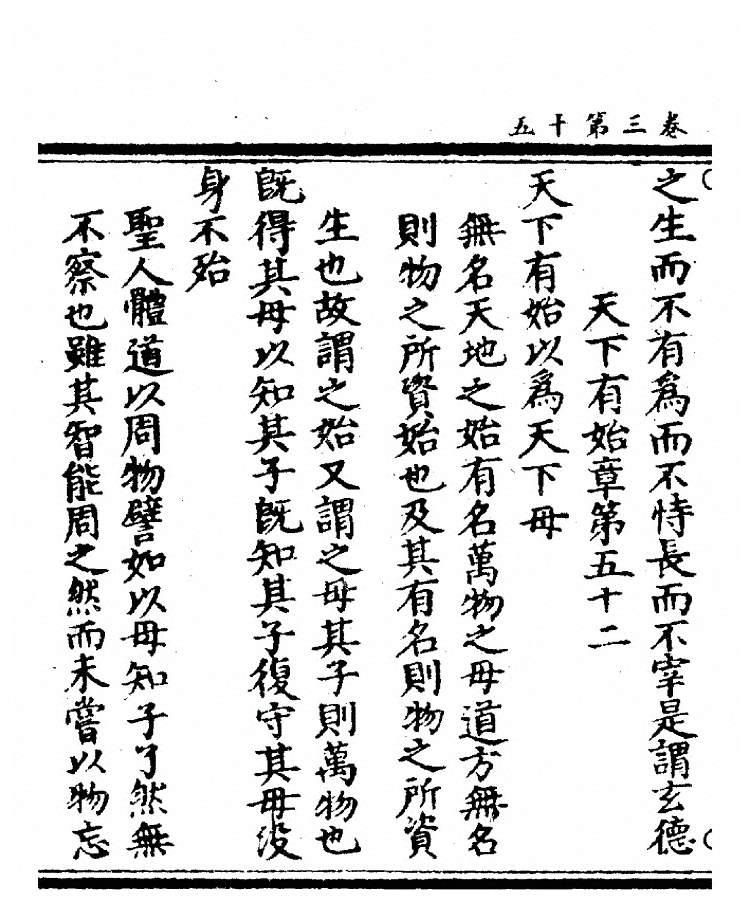 卷三第十五
之生而不有爲而不恃長而不宰是謂玄德
天下有始章第五十二
天下有始以爲天下母
無名天地之始有名萬物之母道方無名
則物之所資始也及其有名則物之所資
生也故謂之始又謂之母其子則萬物也
旣得其母以知其子旣知其子復守其母没
身不殆
聖人體道以周物譬如以母知子了然無
不察也雖其智能周之然而未嘗以物忘